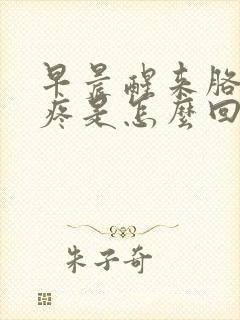 早晨醒来胳
疼是怎麽回
朱子奇